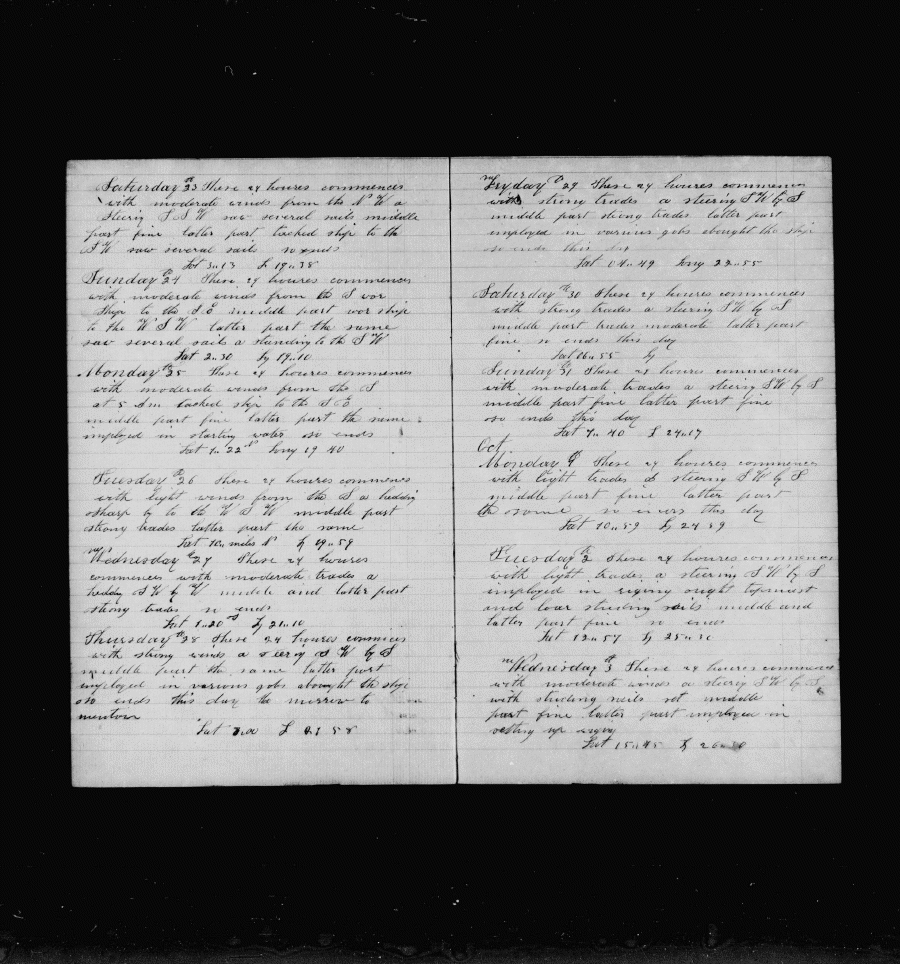 Saturday th 23 These 24 houres commences
with moderate winds from the N W a
Steerig S S W saw several sails middle
part fine latter part tacked ship to the
S W saw several sails so ends
Lat 3..13 L 19..38
Sunday th 24 These 24 houres commences
with moderate winds from the S wor
Ship to the S E middle part wor ship
to the W S W latter part the same
saw several sails a standing to the S W
Lat 2..30 Lg 19..10
Monday th 25 these 24 houres commences
with moderate winds from the S
at 5 Am tacked ship to the S E
middle part fine latter part the same
imployed in starting water so ends
Lat 1..22 N Long 19 40
Tuesday th 26 these 24 houres commences
with light winds from the S a heddig
sharp by to the W S W middle part
strong trades latter part the same
Lat 10.. miles N Lg 19..59
Wednesday th 27 These 24 houres
commences with moderate trades a
heddig S W by W middle and latter part
strong trades so ends
Lat 1..20 S Lg 21..10
Thursday th 28 these 24 houres commices
with strong winds a steerig S W by S
middle part the same latter part
imployed in various gobs abought the ship
so ends this day no murrew to
mention
Lat L 58
Fryday th 29 these 24 houres commences
with strong trades a steering S W by S
middle part strong trades latter part
employed in various gobs abought the ship
so ends this day
Lat 04..49 Long 22..55
Saturday th 30 These 24 houres commences
with strong trades a steering S W by S
middle part trades moderate latter part
fine so ends this day
Lat 06..55 Lg
Sunday th 31 these 24 houres commences
with moderate trades a steering S W by S
middle part fine latter part fine
so ends this day
Lat 7.. 40 L 24..17
Oct
Monday 1 These 24 houres commences
with light trades a steering S W by S
middle part fine latter part
the same so ends this day
Lat 10..59 Lg 24 39
Tuesday th 2 these 24 houres commences
with light trades a steering S W by S
imployed in riging ought topmast
and loar studing sails middle and
latter part fine so ends
Lat 12..57 Lg 25..
Wednesday th 3 these 24 houres commences
with moderate winds a steerig S W by S
with studing sails set middle
part fine latter part imployed in
setting up riging
Lat 15..45 Lg 26..